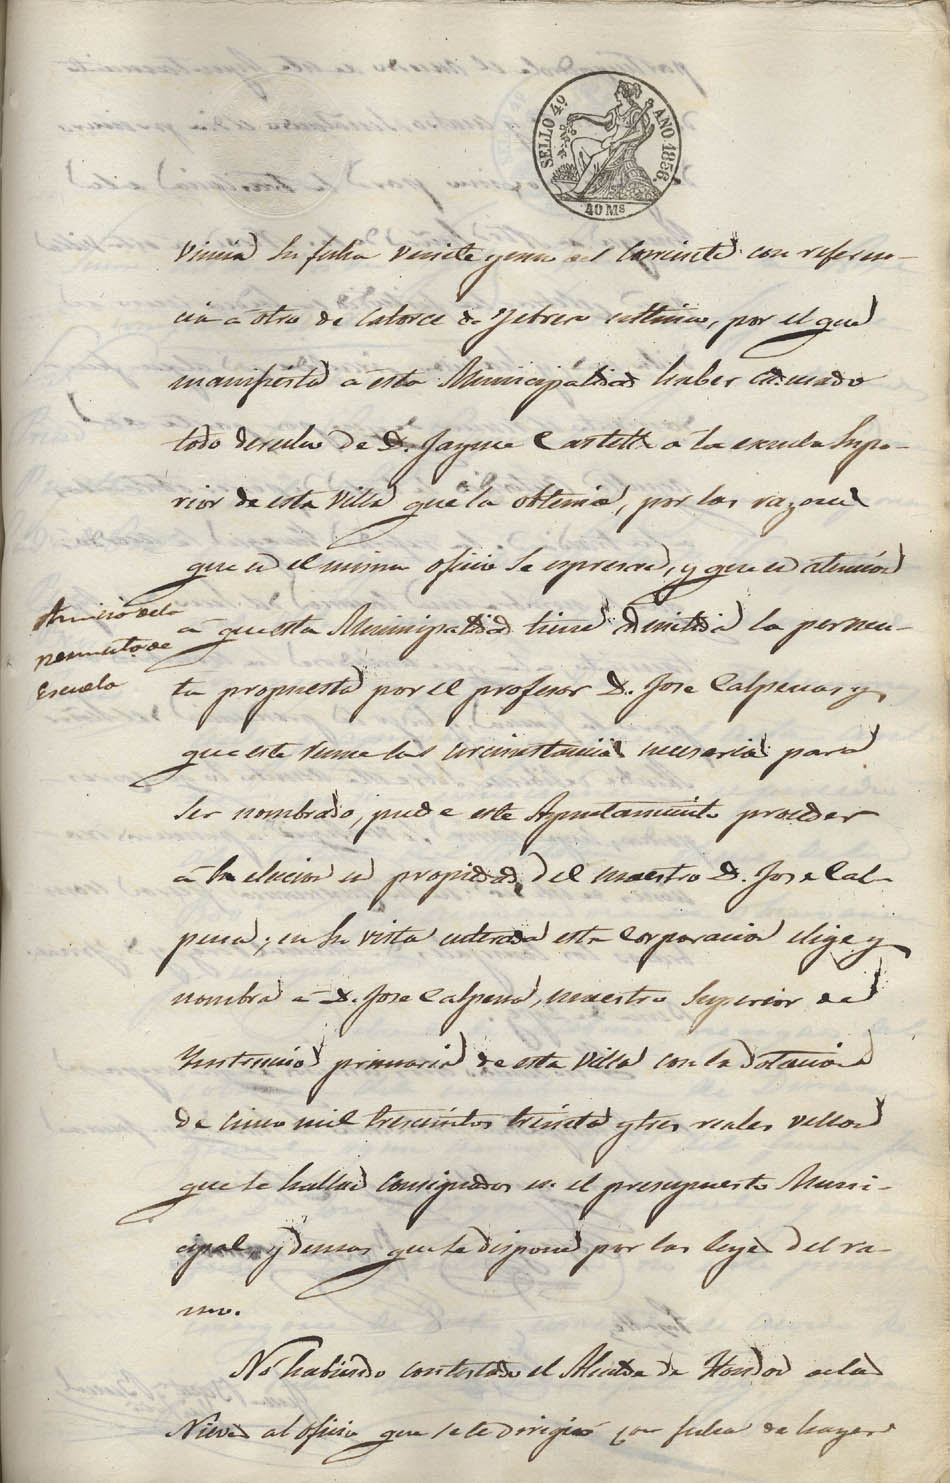 SELLO 4º AÑO 1856.
40 Ms
vincia su fecha veinte y uno del corriente con referen-
cia a otro de catorce de Febrero ultimo, por el que
manifiesta a esta Municipalidad haber caducado
todo derecho de D. Jayme Castell a la escuela Supe-
rior de esta Villa que la obtenia, por las razones
que en el mismo oficio se espresan, y que en atencion
a que esta Municipalidad tiene admitida la permu-
ta propuesta por el profesor D. Jose Calpena y
que este reune las circunstancias necesarias para
ser nombrado, puede este Ayuntamiento proceder
a la eleccion en propiedad del maestro D. Jose Cal-
pena; en su vista enterada esta Corporacion elige y
nombra a D. Jose Calpena, maestro Superior de
Ynstruccion primaria de esta Villa con la dotacion
de cinco mil trescientos treinta y tres reales vellon
que se hallan consignados en el presupuesto Muni-
cipal y demas que se dispone por las leyes del ra-
mo.
Anuncio de la
permuta de
Escuela
No habiendo contestado el Alcalde de Hondon de las
Nieves al oficio que se le dirigió con fecha de hayer